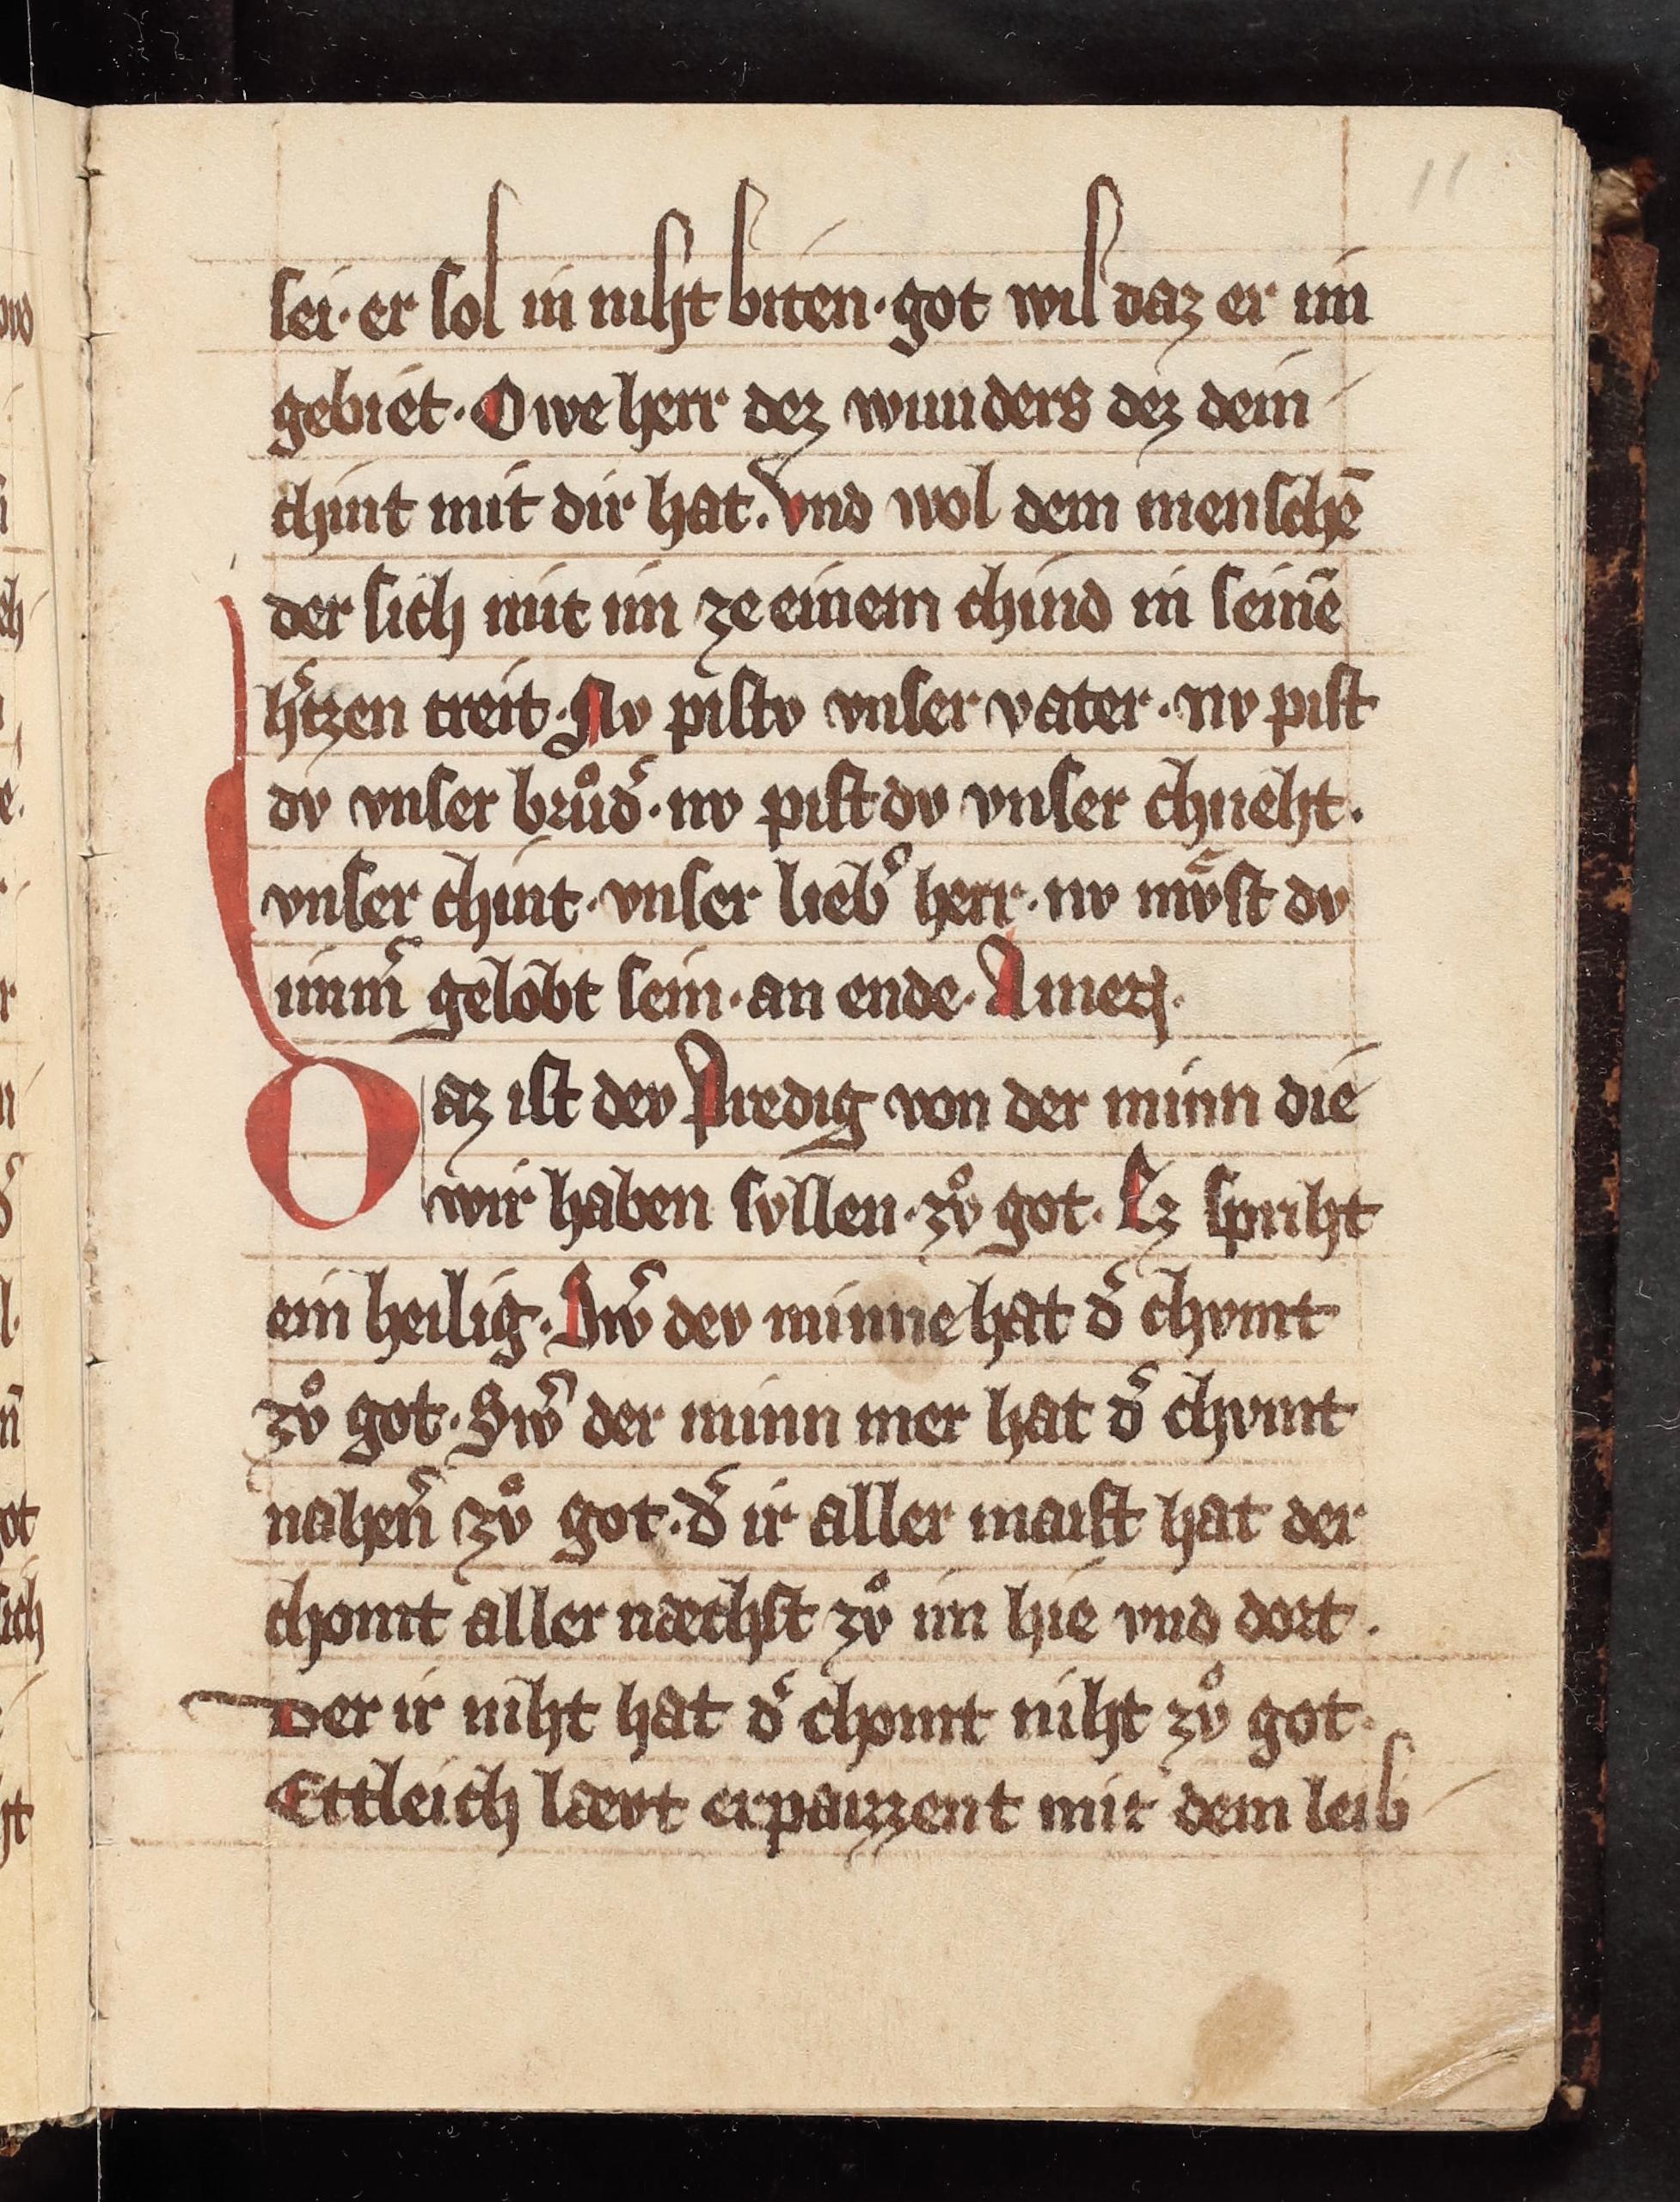 11
sei· er sol in niht biten· got wil daz er im
gebiet· Owe herr dez wunders dez dein
chint mit dir hat. Vnd wol dem menschē
der sich mit im ze einem chind in seinē
h͛tzen treit· Nv pistv vnser vater· nv pist
dv vnser brůd͛· nv pist dv vnser chneht.
vnser chint· vnser lieb͛ herr· nv mv̊st dv
imm͛ gelobt sein· an ende· Amen·
Daz ist dev Predig von der minn die
wir haben svllen· zv̊ got· Ez spriht
ein heilig· Sw͛ dev minne hat d͛ chvmt
zv̊ got· Sw͛ der minn mer hat d͛ chvmt
nahen͛ zv̊ got· d͛ ir aller maist hat der
chomt aller næchst zv̊ im hie vnd dort.
Der ir niht hat d͛ chomt niht zv̊ got·
Ettleich lævt erpaizzent mit dem leib